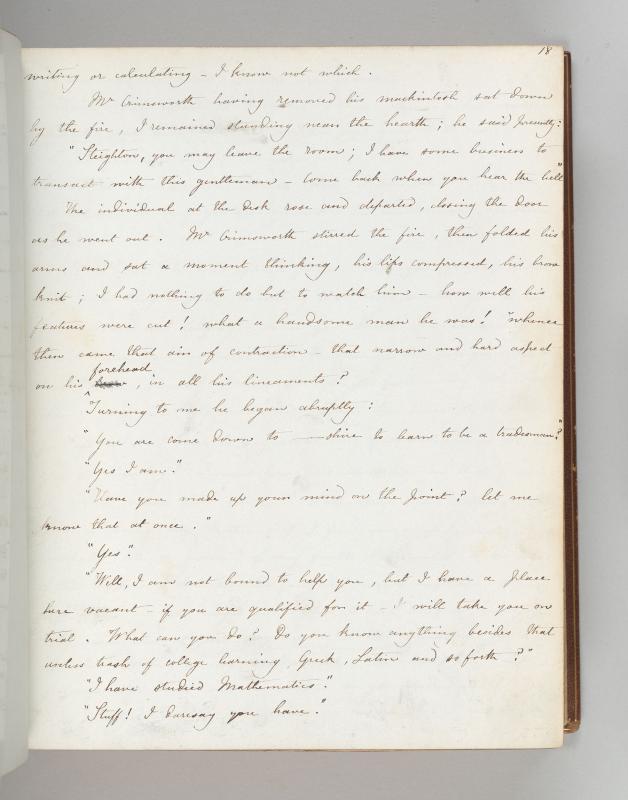 18
writing or calculating - I know not which.
Mr Crimsworth having removed his mackintosh sat down
by the fire, I remained standing near the hearth; he said presently:
"Steighton, you may leave the room; I have some business to
transact with this gentleman - come back when you hear the bell"
The individual at the desk rose and departed, closing the door
as he went out. Mr Crimsworth stirred the fire, then folded his
arms and sat a moment thinking, his lips compressed, his brow
knit; I had nothing to do but to watch him - how well his
features were cut! what a handsome man he was! whence
then came that air of contraction - that narrow and hard aspect
forehead
on his , in all his lineaments?
Turning to me he began abruptly:
"You are come down to ——shire to learn to be a tradesman?"
"Yes I am."
"Have you made up your mind on the point? let me
know that at once."
"Yes".
"Well, I am not bound to help you, but I have a place
here vacant - if you are qualified for it - I will take you on
trial. What can you do? Do you know anything besides that
useless trash of college learning Greek, Latin and so forth?"
"I have studied Mathematics".
"Stuff! I daresay you have."